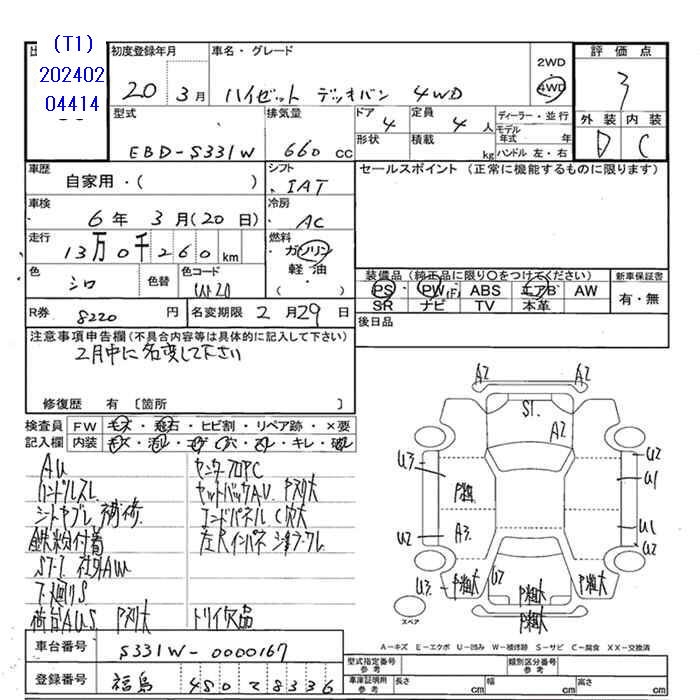 (T1)
202402
04414
初度登録年月
20 3月
車名・グレード
ハイゼット デッキバン 4WD
2WD
4WD
評価点
3
外装 内装
D C
型式
EBD-S331W
排気量
660 cc
ドア
4
定員
4 人
形状
積載
kg
ディーラー・並行
モデル年式 年
ハンドル 左・右
車歴
自家用・( )
シフト
IAT
車検
6年 3月(20日)
冷房
AC
走行
13万0千260km
燃料
ガソリン
軽油
( )
色
シロ
色替
色コード
W20
R券
8220 円
名変期限 2月29日
セールスポイント (正常に機能するものに限ります)
装備品(純正品に限り○をつけてください)
PS PW ABS エアB AW
SR ナビ TV 本革
新車保証書
有・無
後日品
注意事項申告欄(不具合内容等は具体的に記入して下さい)
2月中に名変して下さい
修復歴 有 〔箇所 〕
検査員 FW キズ・飛石・ヒビ割・リペア跡・×要
記入欄 内装 キズ・汚レ・コゲ・穴・スレ・キレ・破レ
AU
ハンドルスレ
シートヤブレ、補修
鉄粉付着
下廻りS
荷台A.U.S. Pスリ大
センターフロアC
エンドパネル C穴大
トリイ欠品
A2 A2
S1.
A2
U3
P粗
U2
A3.
U3
P粗大
U2
P粗大
P粗大
P粗大
U2
U1
U1
U2
スペア
A-キズ E-エクボ U-凹み W-補修跡 S-サビ C-腐食 XX-交換済
車台番号 S331W-0000167
登録番号 福島 480 2 8336
型式指定番号
参考
類別区分番号
参考
車庫証明用
参考
長さ cm 幅 cm 高さ cm